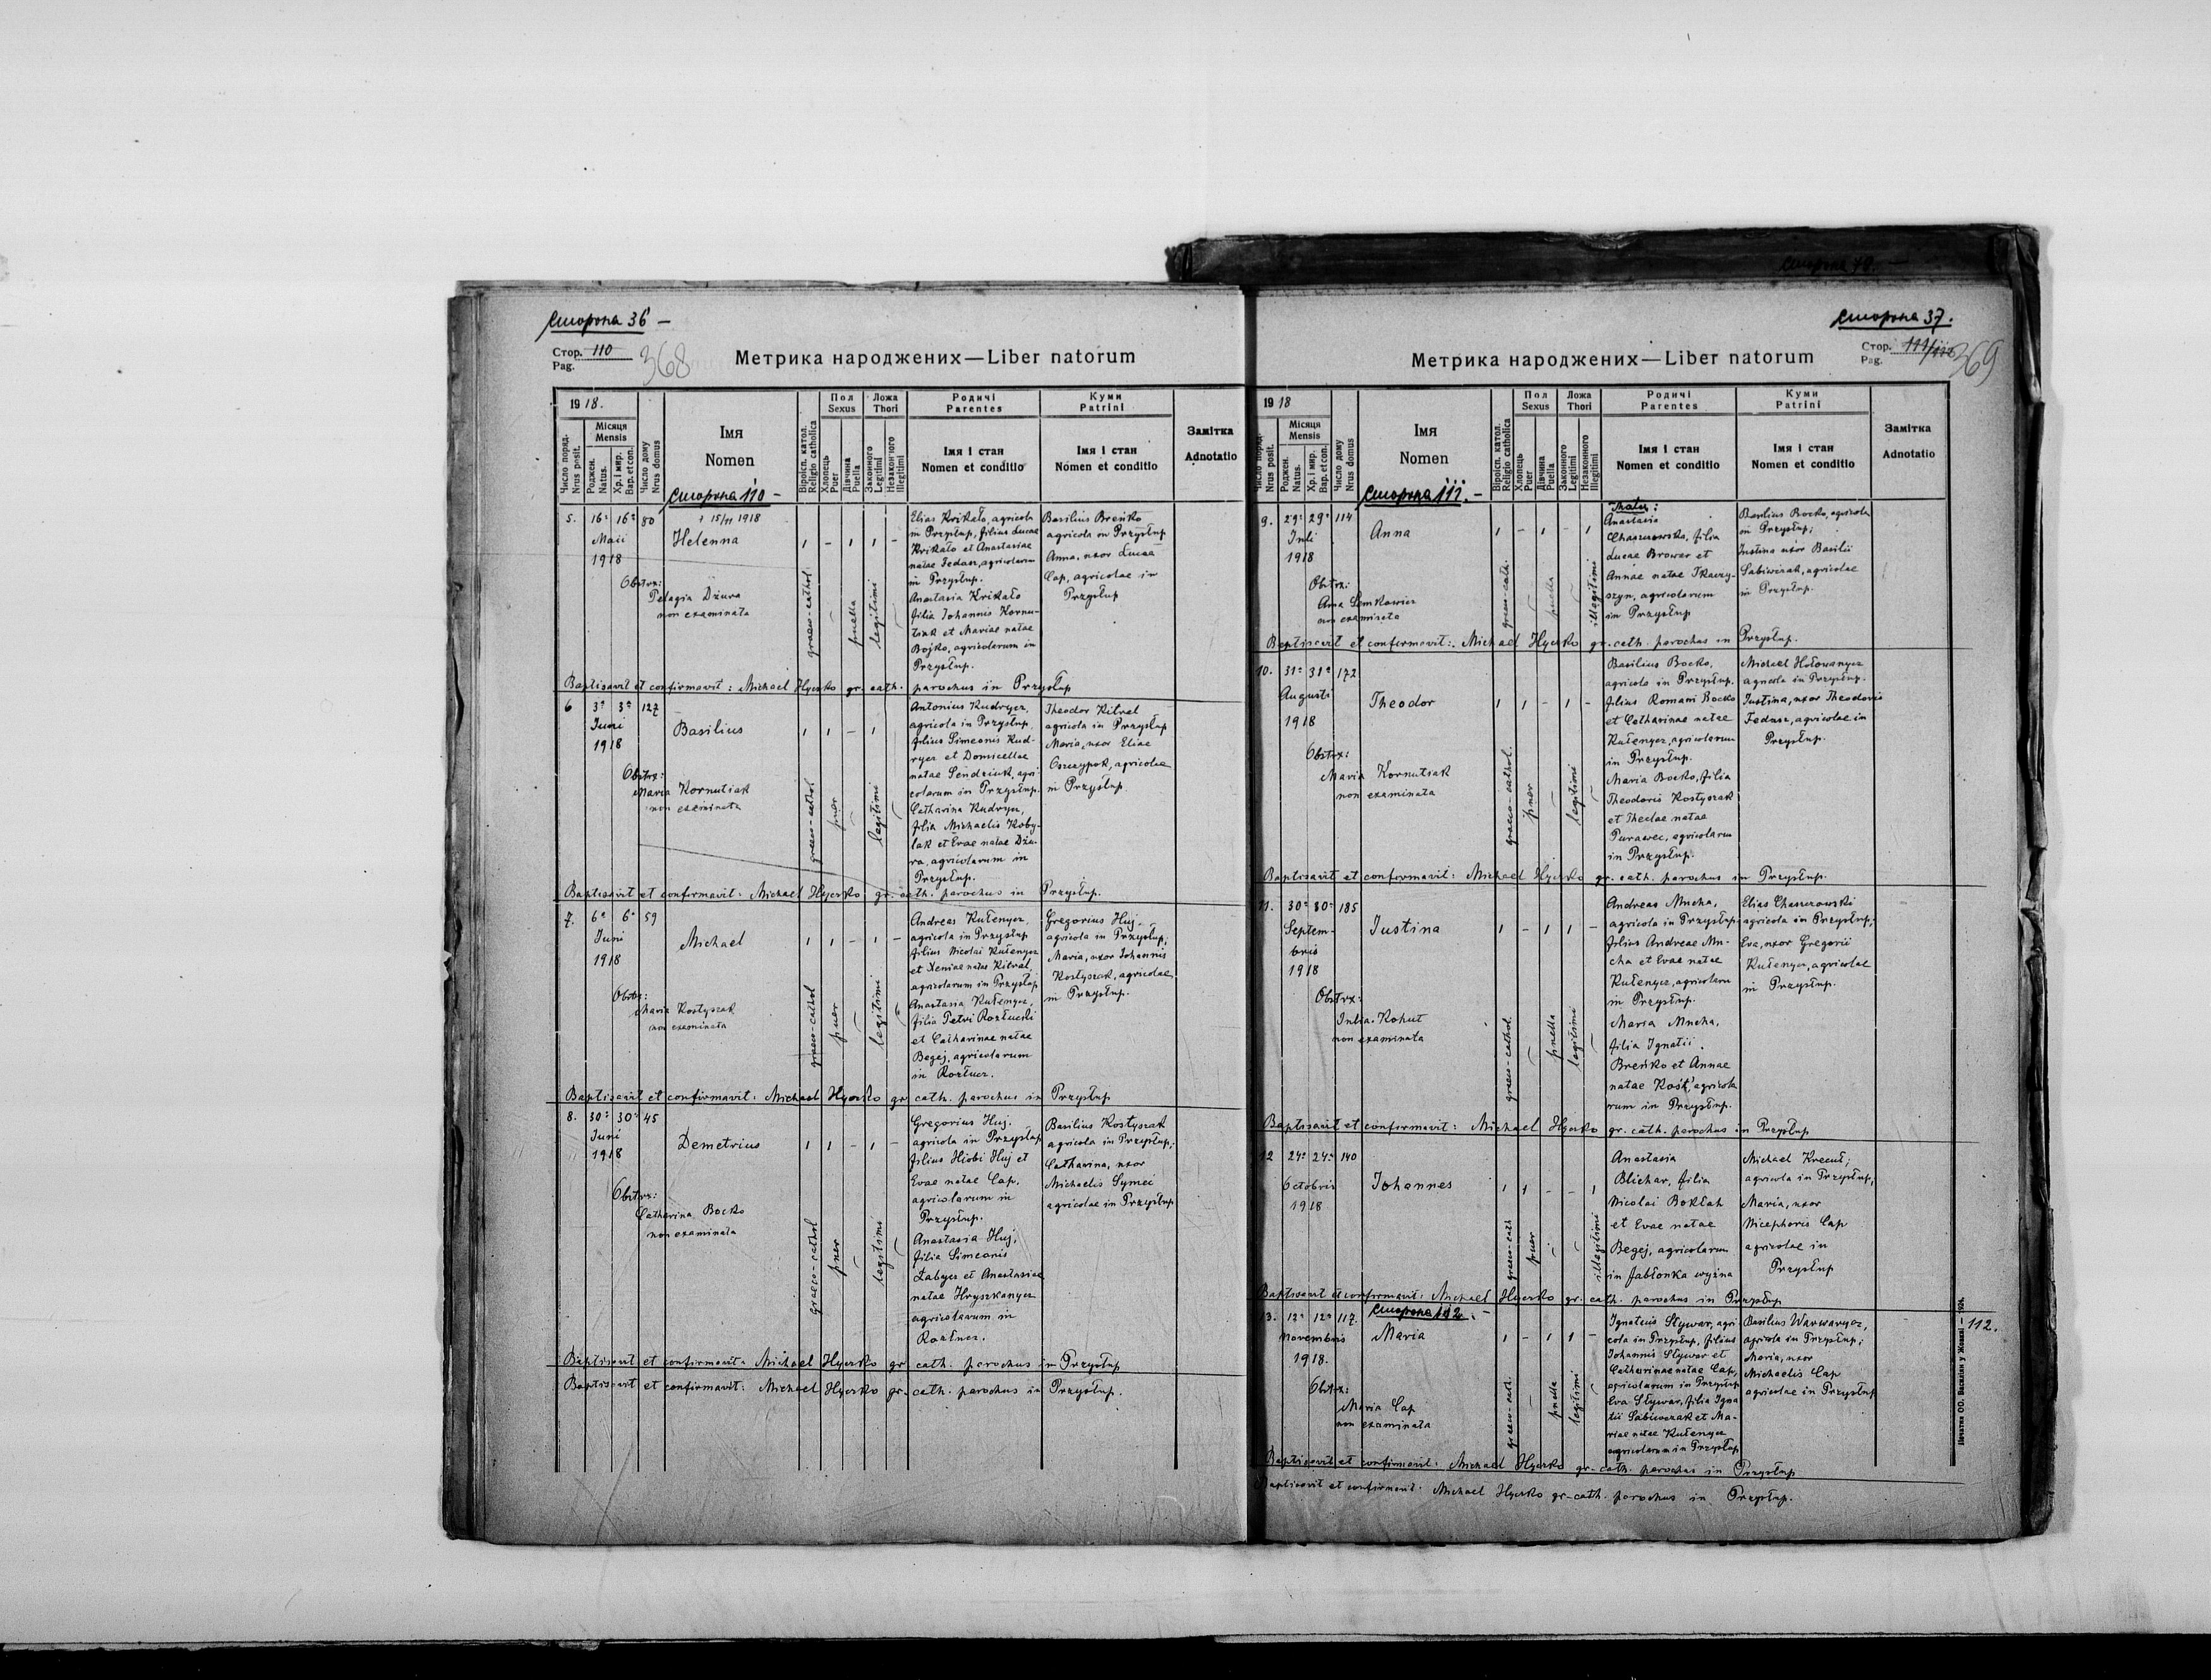 Сторона 36 –
Стор. 110
Pag.
368
Метрика народжених — Liber natorum
19 18.
Число поряд.
Nrus posit.
Місяця
Mensis
Роджен.
Natus.
Хр. і мир.
Bap. et con.
Число дому
Nrus domus
Імя
Nomen
Сторона 110 –
Віроісп. катол.
Religio catholica
Пол
Sexus
Хлопець
Puer
Дівчина
Puella
Ложа
Thori
Законного
Legitimi
Незаконного
Illegitimi
Родичі
Parentes
Імя і стан
Nomen et conditio
Куми
Patrini
Імя і стан
Nomen et conditio
Замітка
Adnotatio
5. 16a 16a 80
Maii
1918
† 15/11 1918
Helenna
Obstrx:
Pelagia Dżura
non examinata
1 – 1 1 –
graeco-cathol.
puella
legitimi
Elias Krikało, agricola
in Przysłup, filius Lucae
Krikało et Anastasiae
natae Fedasz, agricolarum
in Przysłup.
Anastasia Krikało
filia Johannis Kornu-
tiak et Mariae natae
Bojko, agricolarum in
Przysłup.
Basilius Breńko
agricola in Przysłup
Anna, uxor Lucae
Cap, agricolae in
Przysłup
Baptisavit et confirmavit: Michael Hycko gr. cath. parochus in Przysłup
6 3a 3a 127
Juni
1918
Basilius
Obstrx:
Maria Kornutiak
non examinata
1 1 – 1
graeco-cathol
puer
legitimi
Antonius Kudrycz,
agricola in Przysłup,
filius Simeonis Kud-
rycz et Domicellae
natae Sendziuk, agri-
colarum in Przysłup.
Catharina Kudrycz,
filia Michaelis Koby-
lak et Evae natae Dżu-
ra, agricolarum in
Przysłup.
Theodor Kitral
agricola in Przysłup
Maria, uxor Eliae
Oszczypok, agricolae
in Przysłup
Baptisavit et confirmavit: Michael Hycko gr. cath. parochus in Przysłup.
7. 6a 6a 59
Juni
1918
Michael
Obstrx:
Maria Kostyszak
non examinata
1 1 – 1 –
graeco-cathol
puer
legitimi
Andreas Kułenycz,
agricola in Przysłup
filius Nicolai Kułenycz
et Xeniae natae Kitral,
agricolarum in Przysłup
Anastasia Kułenycz,
filia Petri Rozłucki
et Catharinae natae
Begej, agricolarum
in Rozłucz.
Gregorius Huj
agricola in Przysłup;
Maria, uxor Johannis
Kostyszak, agricolae
in Przysłup.
Baptisavit et confirmavit: Michael Hycko gr cath. parochus in Przysłup
8. 30a 30a 45
Juni
1918
Demetrius
Obstrx:
Catharina Bocko
non examinata
1 1 – 1 –
graeco-cathol
puer
legitimi
Gregorius Huj.
agricola in Przysłup
filius Hiobi Huj et
Evae natae Cap,
agricolarum in
Przysłup.
Anastasia Huj,
filia Simeonis
Łabycz et Anastasiae
natae Hryszkanycz
agricolarum in
Rozłucz.
Basilius Kostyszak
agricola in Przysłup;
Catharina, uxor
Michaelis Symei
agricolae in Przysłup
Baptisavit et confirmavit: Michael Hycko gr cath. parochus in Przysłup
Baptisavit et confirmavit: Michael Hycko gr. cath. parochus in Przysłup.
Сторона 37.
Стор. 111/112
Pag.
369
Метрика народжених — Liber natorum
19 18
Число поряд.
Nrus posit.
Місяця
Mensis
Роджен.
Natus.
Хр. і мир.
Bap. et con.
Число дому
Nrus domus
Імя
Nomen
Сторона 111. –
Віроісп. катол.
Religio catholica
Пол
Sexus
Хлопець
Puer
Дівчина
Puella
Ложа
Thori
Законного
Legitimi
Незаконного
Illegitimi
Родичі
Parentes
Імя і стан
Nomen et conditio
Куми
Patrini
Імя і стан
Nomen et conditio
Замітка
Adnotatio
9. 29a 29a 114
Juli
1918
Anna
Obstrx:
Anna Lemkowicz
non examinata
1 – 1 – 1
graeco-cath.
puella
illegitimi
Mater:
Anastasia
Chaszczowska, filia
Lucae Browar et
Annae natae Tkaczy-
szyn, agricolarum
in Przysłup
Basilius Bocko, agricola
in Przysłup;
Justina uxor Basilii
Sabiwczak, agricolae
in Przysłup.
Baptisavit et confirmavit: Michael Hycko gr. cath. parochus in Przysłup.
10. 31a 31a 172
Augusti
1918
Theodor
Obstrx:
Maria Kornutiak
non examinata
1 1 – 1 –
graeco-cathol.
puer
legitimi
Basilius Bocko,
agricola in Przysłup,
filius Romani Bocko
et Catharinae natae
Kułenycz, agricolarum
in Przysłup.
Maria Bocko, filia
Theodoris Kostyszak
et Theclae natae
Purawec, agricolarum
in Przysłup.
Michael Hołowanycz
agricola in Przysłup.
Justina, uxor Theodoris
Fedasz, agricolae in
Przysłup.
Baptisavit et confirmavit: Michael Hycko gr. cath. parochus in Przysłup.
11. 30a 30a 185
Septem-
bris
1918
Justina
Obstrx:
Julia Kohut
non examinata
1 – 1 1 –
graeco-cathol.
puella
legitimi
Andreas Mucha,
agricola in Przysłup
filius Andreae Mu-
cha et Evae natae
Kułenycz, agricolarum
in Przysłup.
Maria Mucha,
filia Ignatii
Breńko et Annae
natae Kość, agricola
rum in Przysłup.
Elias Chaszczowski
agricola in Przysłup;
Eva, uxor Gregorii
Kułenycz, agricolae
in Przysłup.
Baptisavit et confirmavit: Michael Hycko gr. cath. parochus in Przysłup
12 24a 24a 140
Octobris
1918
Johannes
1 1 – – 1
graeco-cath
puer
illegitimi
Anastasia
Blichar, filia
Nicolai Bokłah
et Evae natae
Begej, agricolarum
in Jabłonka wyżna
Michael Krecuł;
agricola in Przysłup;
Maria, uxor
Nicephoris Cap
agricolae in
Przysłup
Baptisavit et confirmavit: Michael Hycko gr. cath. parochus in Przysłup
Сторона 112. –
13. 12a 12a 117.
Novembris
1918.
Maria
Obstrx:
Maria Cap
non examinata
1 – 1 1 –
graeco-cath.
puella
legitimi
Ignatius Stywar, agri
cola in Przysłup, filius
Johannis Stywar et
Catharinae natae Cap,
agricolarum in Przysłup
Eva Stywar, filia Igna
tii Sabiwczak et Ma-
riae natae Kułenycz
agricolarum in Przysłup
Basilius Warwarycz,
agricola in Przysłup;
Maria, uxor
Michaelis Cap
agricolae in Przysłup
– 112.
Baptisavit et confirmavit: Michael Hycko gr. cath. parochus in Przysłup
Baptisavit et confirmavit: Michael Hycko gr-cath. parochus in Przysłup.
Печатня ОО. Василіян у Жовкві — 1924.